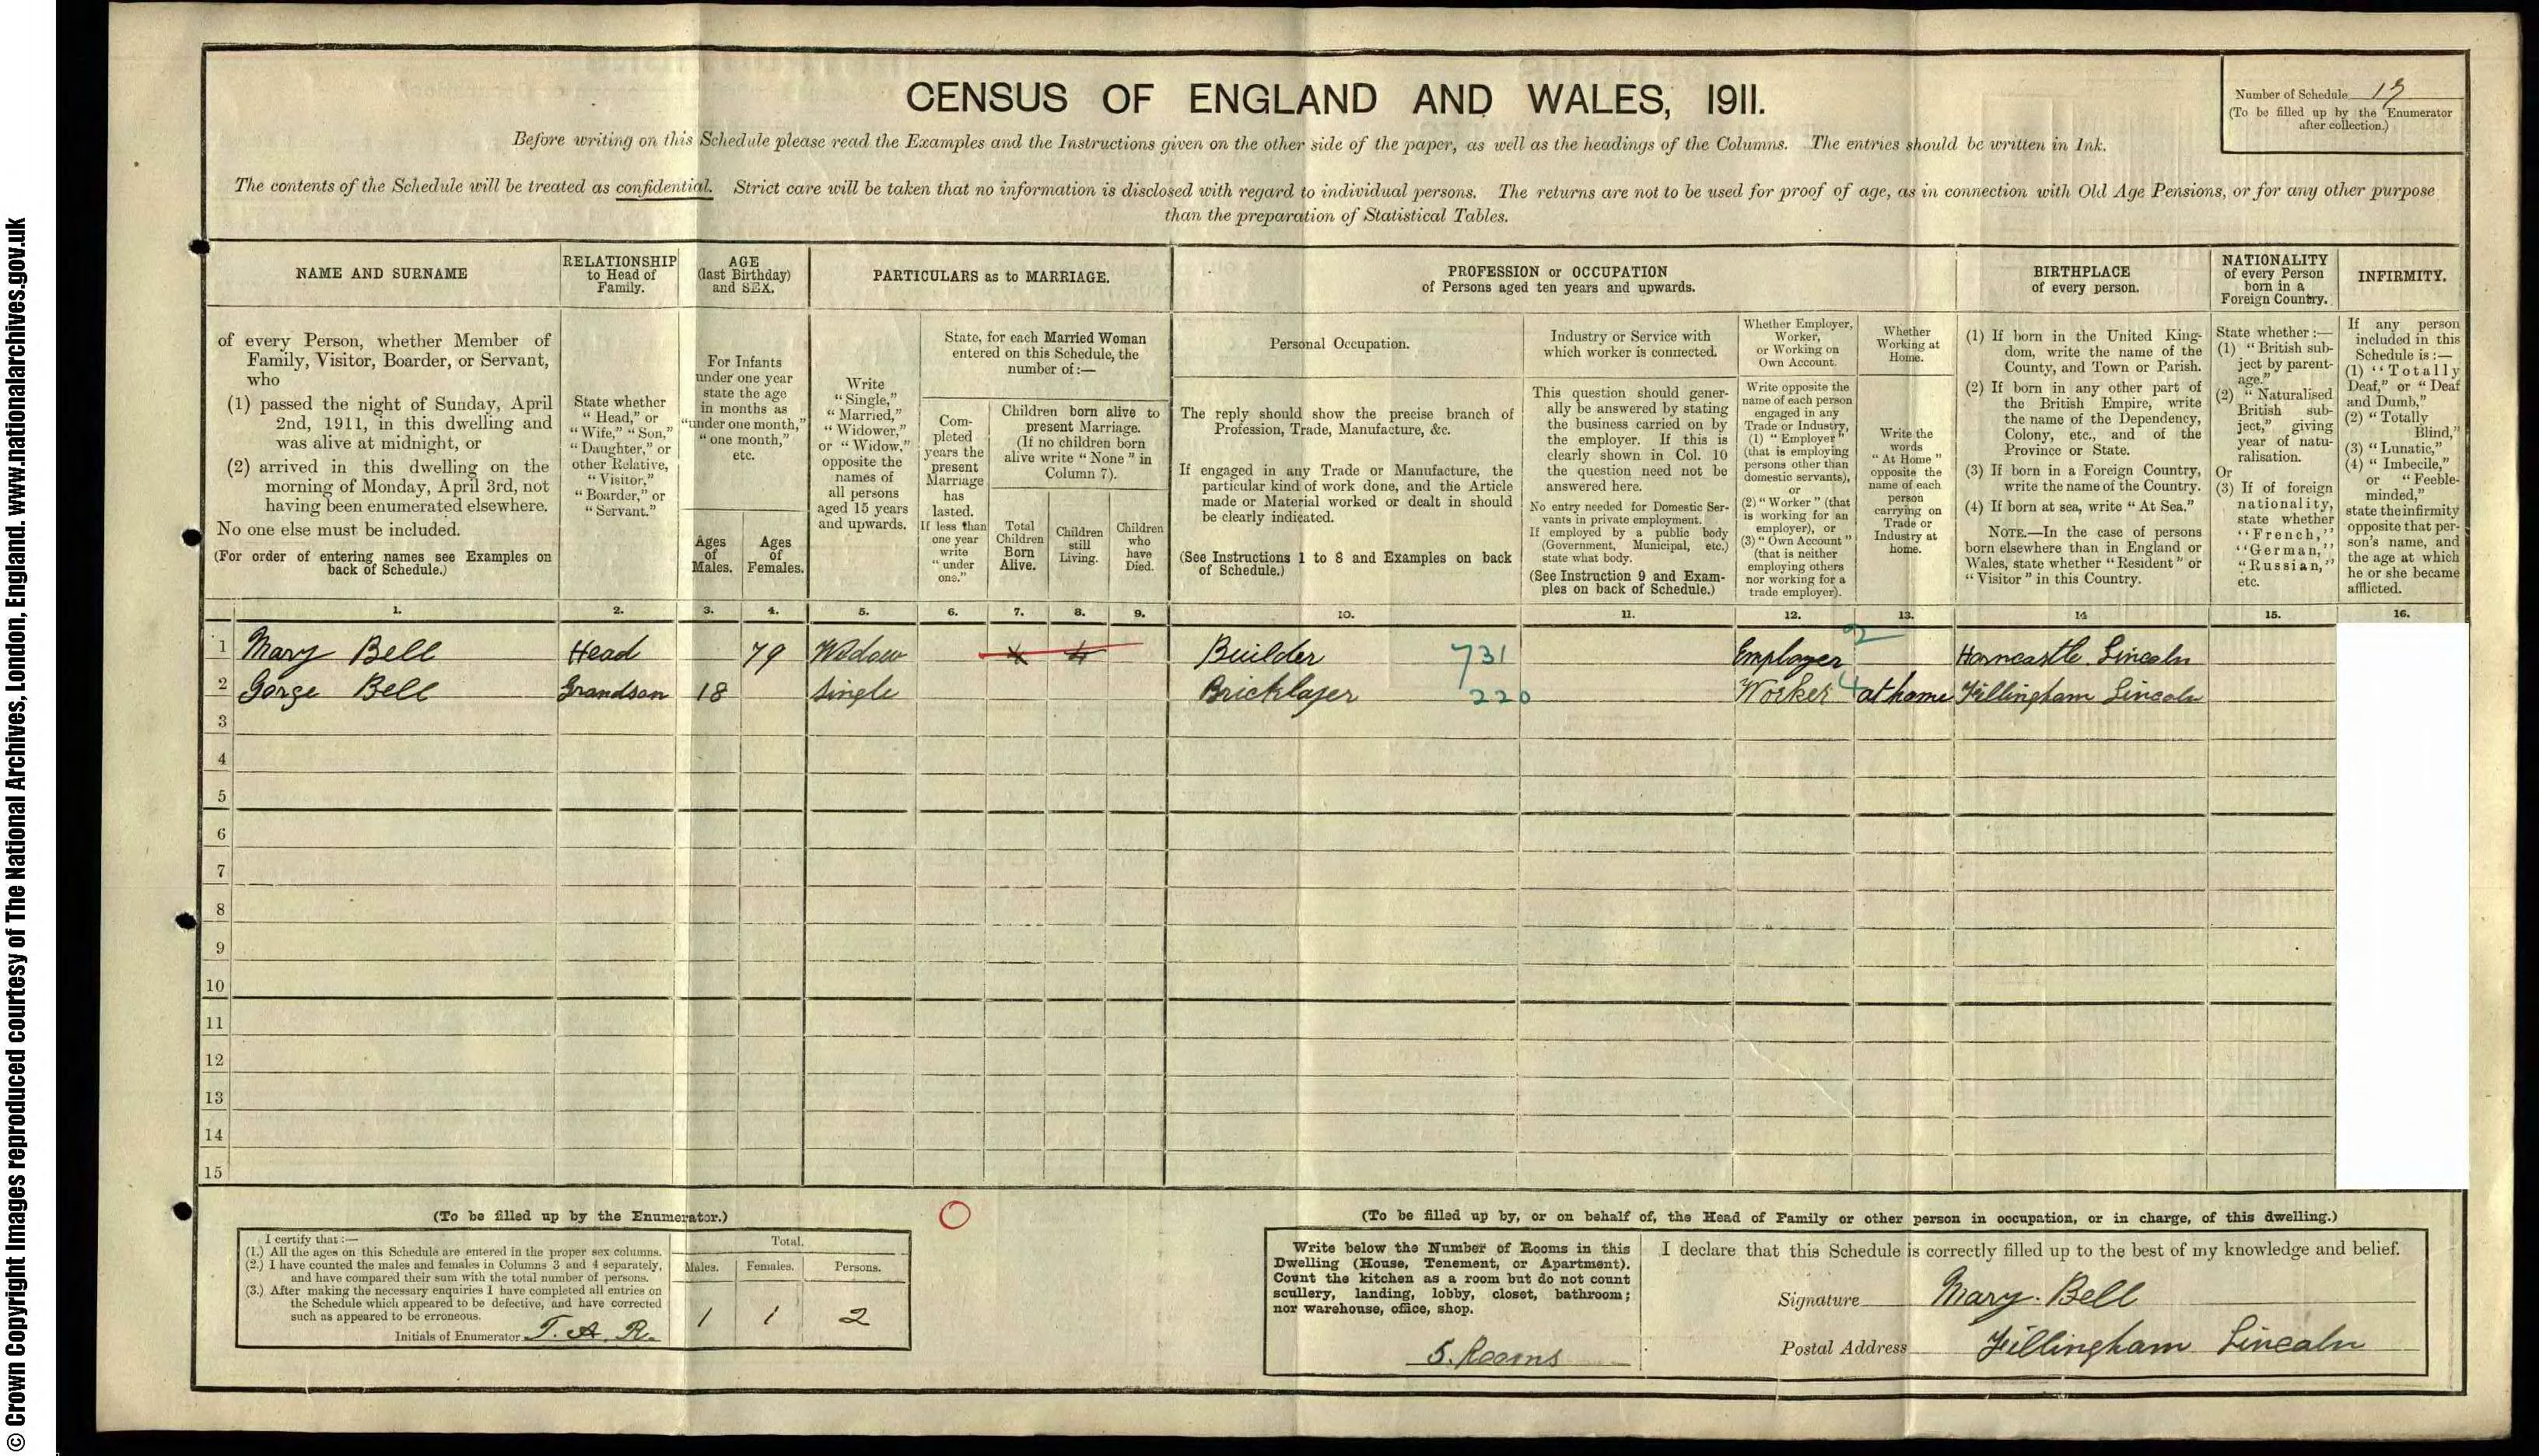 © Crown Copyright Images reproduced courtesy of The National Archives, London, England. www.nationalarchives.gov.uk
CENSUS OF ENGLAND AND WALES, 1911.
Number of Schedule
(To be filled up by the Enumerator
after collection.)
Before writing on this Schedule please read the Examples and the Instructions given on the other side of the paper, as well as the headings of the Columns. The entries should be written in Ink.
The contents of the Schedule will be treated as confidential. Strict care will be taken that no information is disclosed with regard to individual persons. The returns are not to be used for proof of age, as in connection with Old Age Pensions, or for any other purpose
than the preparation of Statistical Tables.
NAME AND SURNAME
RELATIONSHIP
to Head of
Family.
AGE
(last Birthday)
and SEX.
PARTICULARS as to MARRIAGE.
PROFESSION or OCCUPATION
of Persons aged ten years and upwards.
BIRTHPLACE
of every person.
NATIONALITY
of every Person
born in a
Foreign Country.
INFIRMITY.
of every Person, whether Member of
Family, Visitor, Boarder, or Servant,
who
(1) passed the night of Sunday, April
2nd, 1911, in this dwelling and
was alive at midnight, or
(2) arrived in this dwelling on the
morning of Monday, April 3rd, not
having been enumerated elsewhere.
No one else must be included.
(For order of entering names see Examples on
back of Schedule.)
State whether
"Head," or
"Wife," "Son,"
"Daughter," or
other Relative,
"Visitor,"
"Boarder," or
"Servant."
For Infants
under one year
state the age
in months as
"under one month,"
"one month,"
etc.
Ages
of
Males.
Ages
of
Females.
Write
"Single,"
"Married,"
"Widower,"
or "Widow,"
opposite the
names of
all persons
aged 15 years
and upwards.
State, for each Married Woman
entered on this Schedule, the
number of:—
Com-
pleted
years the
present
Marriage
has
lasted.
If less than
one year
write
"under
one."
Children born alive to
present Marriage.
(If no children born
alive write "None" in
Column 7).
Total
Children
Born
Alive.
Children
still
Living.
Children
who
have
Died.
Personal Occupation.
The reply should show the precise branch of
Profession, Trade, Manufacture, &c.
If engaged in any Trade or Manufacture, the
particular kind of work done, and the Article
made or Material worked or dealt in should
be clearly indicated.
(See Instructions 1 to 8 and Examples on back
of Schedule.)
Industry or Service with
which worker is connected.
This question should gener-
ally be answered by stating
the business carried on by
the employer. If this is
clearly shown in Col. 10
the question need not be
answered here.
No entry needed for Domestic Ser-
vants in private employment.
If employed by a public body
(Government, Municipal, etc.)
state what body.
(See Instruction 9 and Exam-
ples on back of Schedule.)
Whether Employer,
Worker,
or Working on
Own Account.
Write opposite the
name of each person
engaged in any
Trade or Industry,
(1) "Employer"
(that is employing
persons other than
domestic servants),
or
(2) "Worker" (that
is working for an
employer), or
(3) "Own Account"
(that is neither
employing others
nor working for a
trade employer).
Whether
Working at
Home.
Write the
words
"At Home"
opposite the
name of each
person
carrying on
Trade or
Industry at
home.
(1) If born in the United King-
dom, write the name of the
County, and Town or Parish.
(2) If born in any other part of
the British Empire, write
the name of the Dependency,
Colony, etc., and of the
Province or State.
(3) If born in a Foreign Country,
write the name of the Country.
(4) If born at sea, write "At Sea."
NOTE.—In the case of persons
born elsewhere than in England or
Wales, state whether "Resident" or
"Visitor" in this Country.
State whether:—
(1) "British sub-
ject by parent-
age."
(2) "Naturalised
British sub-
ject," giving
year of natu-
ralisation.
Or
(3) If of foreign
nationality,
state whether
"French,"
"German,"
"Russian,"
etc.
If any person
included in this
Schedule is:—
(1) "Totally
Deaf," or "Deaf
and Dumb,"
(2) "Totally
Blind,"
(3) "Lunatic,"
(4) "Imbecile,"
or "Feeble-
minded,"
state the infirmity
opposite that per-
son's name, and
the age at which
he or she became
afflicted.
1. 2. 3. 4. 5. 6. 7. 8. 9. 10. 11. 12. 13. 14 15. 16.
1 Mary Bell Head 79 Widow 4 4 Builder 731 Employer 2 Horncastle Lincoln
2 Gorge Bell Grandson 18 Single Bricklayer 220 Worker 4 at home Fillingham Lincoln
3
4
5
6
7
8
9
10
11
12
13
14
15
(To be filled up by the Enumerator.)
I certify that:—
(1.) All the ages on this Schedule are entered in the proper sex columns.
(2.) I have counted the males and females in Columns 3 and 4 separately,
and have compared their sum with the total number of persons.
(3.) After making the necessary enquiries I have completed all entries on
the Schedule which appeared to be defective, and have corrected
such as appeared to be erroneous.
Initials of Enumerator T. A. R.
Total.
Males. Females. Persons.
1 1 2
(To be filled up by, or on behalf of, the Head of Family or other person in occupation, or in charge, of this dwelling.)
Write below the Number of Rooms in this
Dwelling (House, Tenement, or Apartment).
Count the kitchen as a room but do not count
scullery, landing, lobby, closet, bathroom;
nor warehouse, office, shop.
5. Rooms
I declare that this Schedule is correctly filled up to the best of my knowledge and belief.
Signature Mary. Bell
Postal Address Fillingham Lincoln